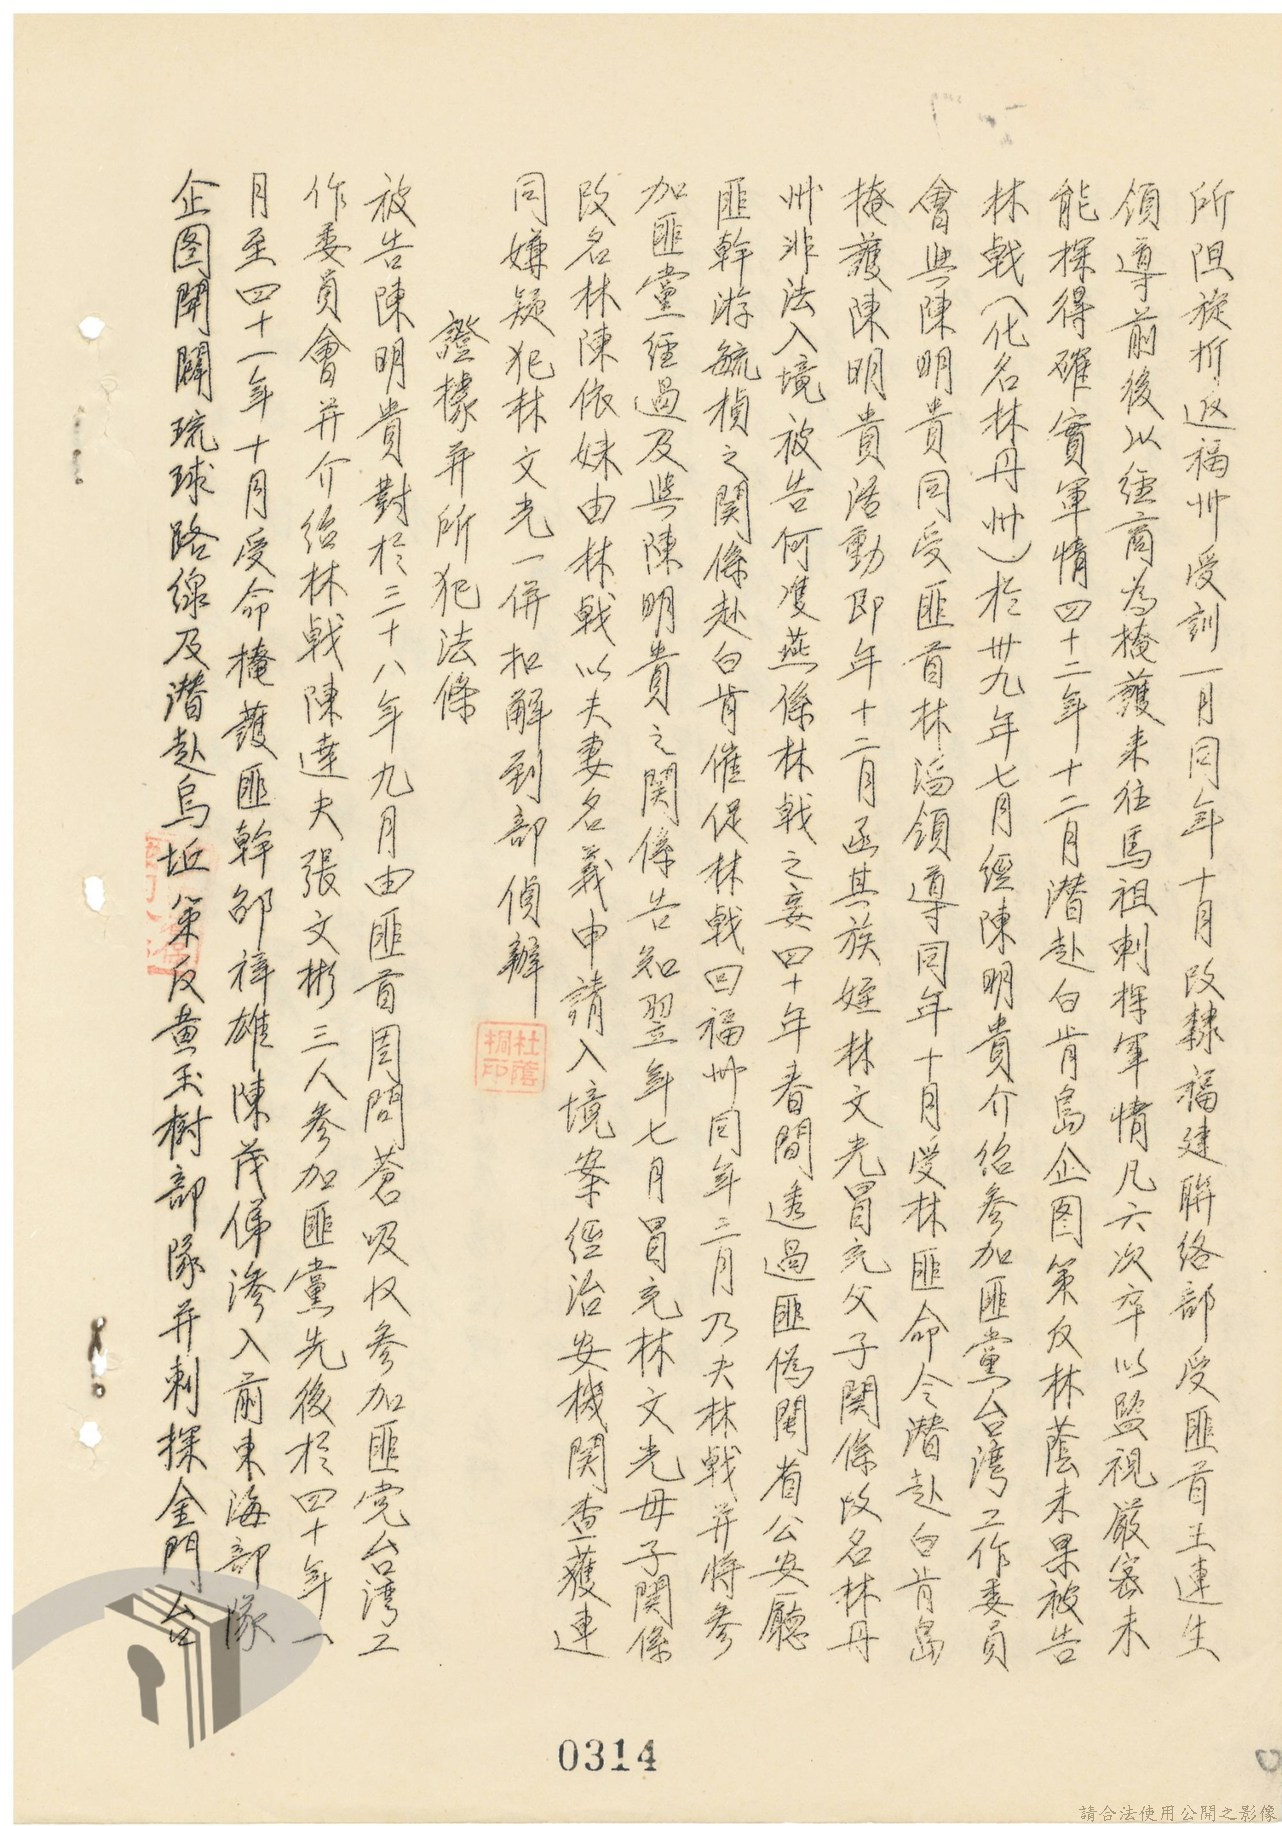 所阻旋折返福州受訓一月同年十月改隸福建聯絡部受匪首王連生
領導前後以經商為掩護来往馬祖刺探軍情凡六次卒以監視嚴密未
能探得確實軍情四十二年十二月潛赴白肯島企图策反林蔭未果被告
林戟(化名林丹州)於卅九年七月經陳明貴介紹參加匪黨台湾工作委員
會與陳明貴同受匪首林滔領導同年十月受林匪命令潛赴白肯島
掩護陳明貴活動即年十二月函其族姪林文光冒充父子関係改名林丹
州非法入境被告何浸燕係林戟之妾四十年春間透過匪偽閩省公安廳
匪幹游毓楨之関係赴白肯催促林戟回福州同年三月乃夫林戟并将參
加匪黨經過及與陳明貴之関係告知翌年七月冒充林文光母子関係
改名林陳依妹由林戟以夫妻名義申請入境案經治安機関查獲連
同嫌疑犯林文光一併扣解到部偵辦
杜蔭桐印
證據并所犯法條
被告陳明貴對於三十八年九月由匪首周問蒼吸收參加匪党台湾工
作委員會并介紹林戟陳達夫張文彬三人參加匪黨先後於四十年一
月至四十一年十月受命掩護匪幹邵禕雄陳茂俤滲入前東海部隊
企图開闢琉球路線及潛赴烏坵策反黄玉樹部隊并刺探金門台
0314
請合法使用公開之影像